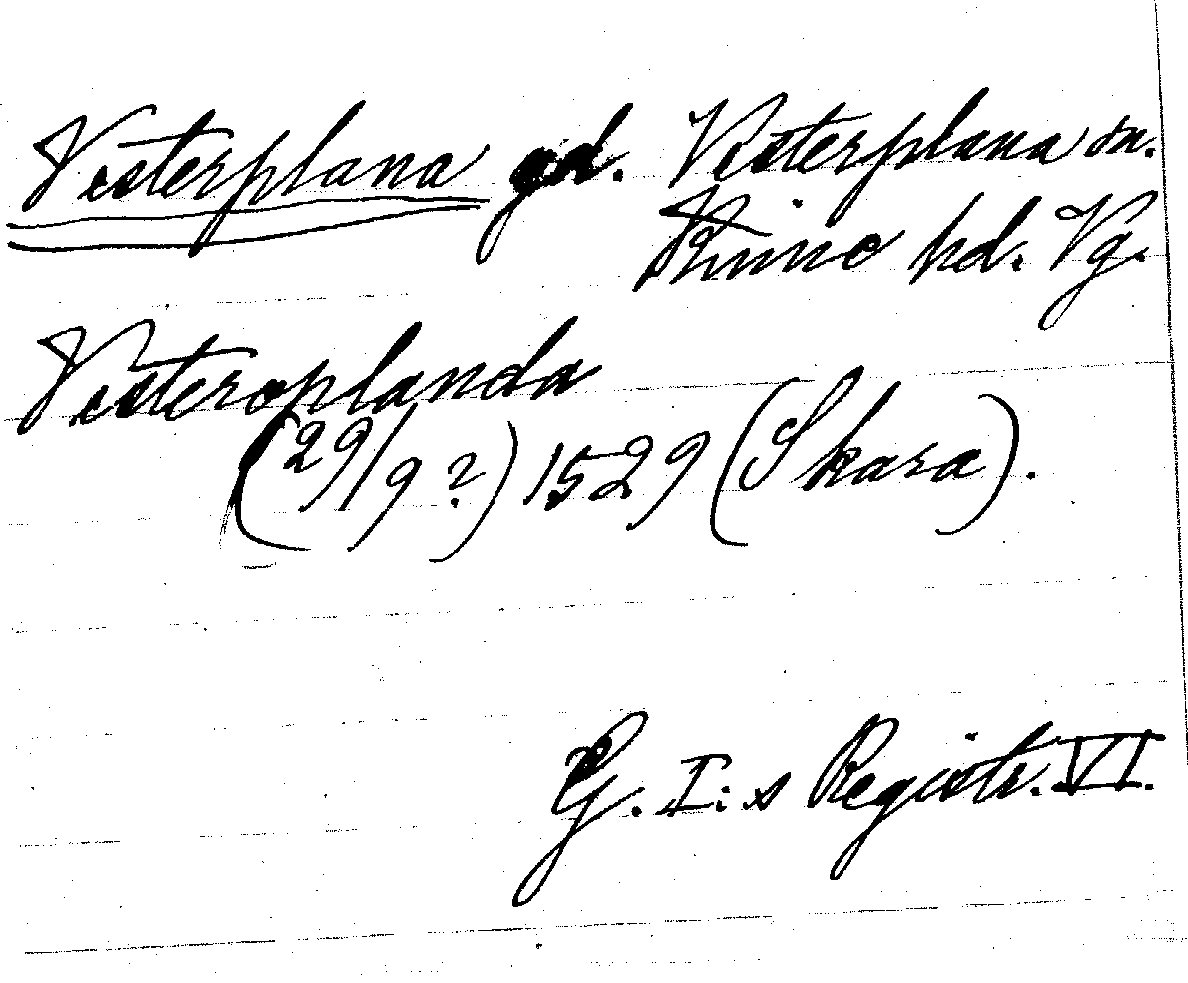 Vesterplana gd. Vesterplana sn.
Kinne hd. Vg.
Vesteroplanda
(29/9 ?) 1529 (Skara).
G. I:s Registr. VI.